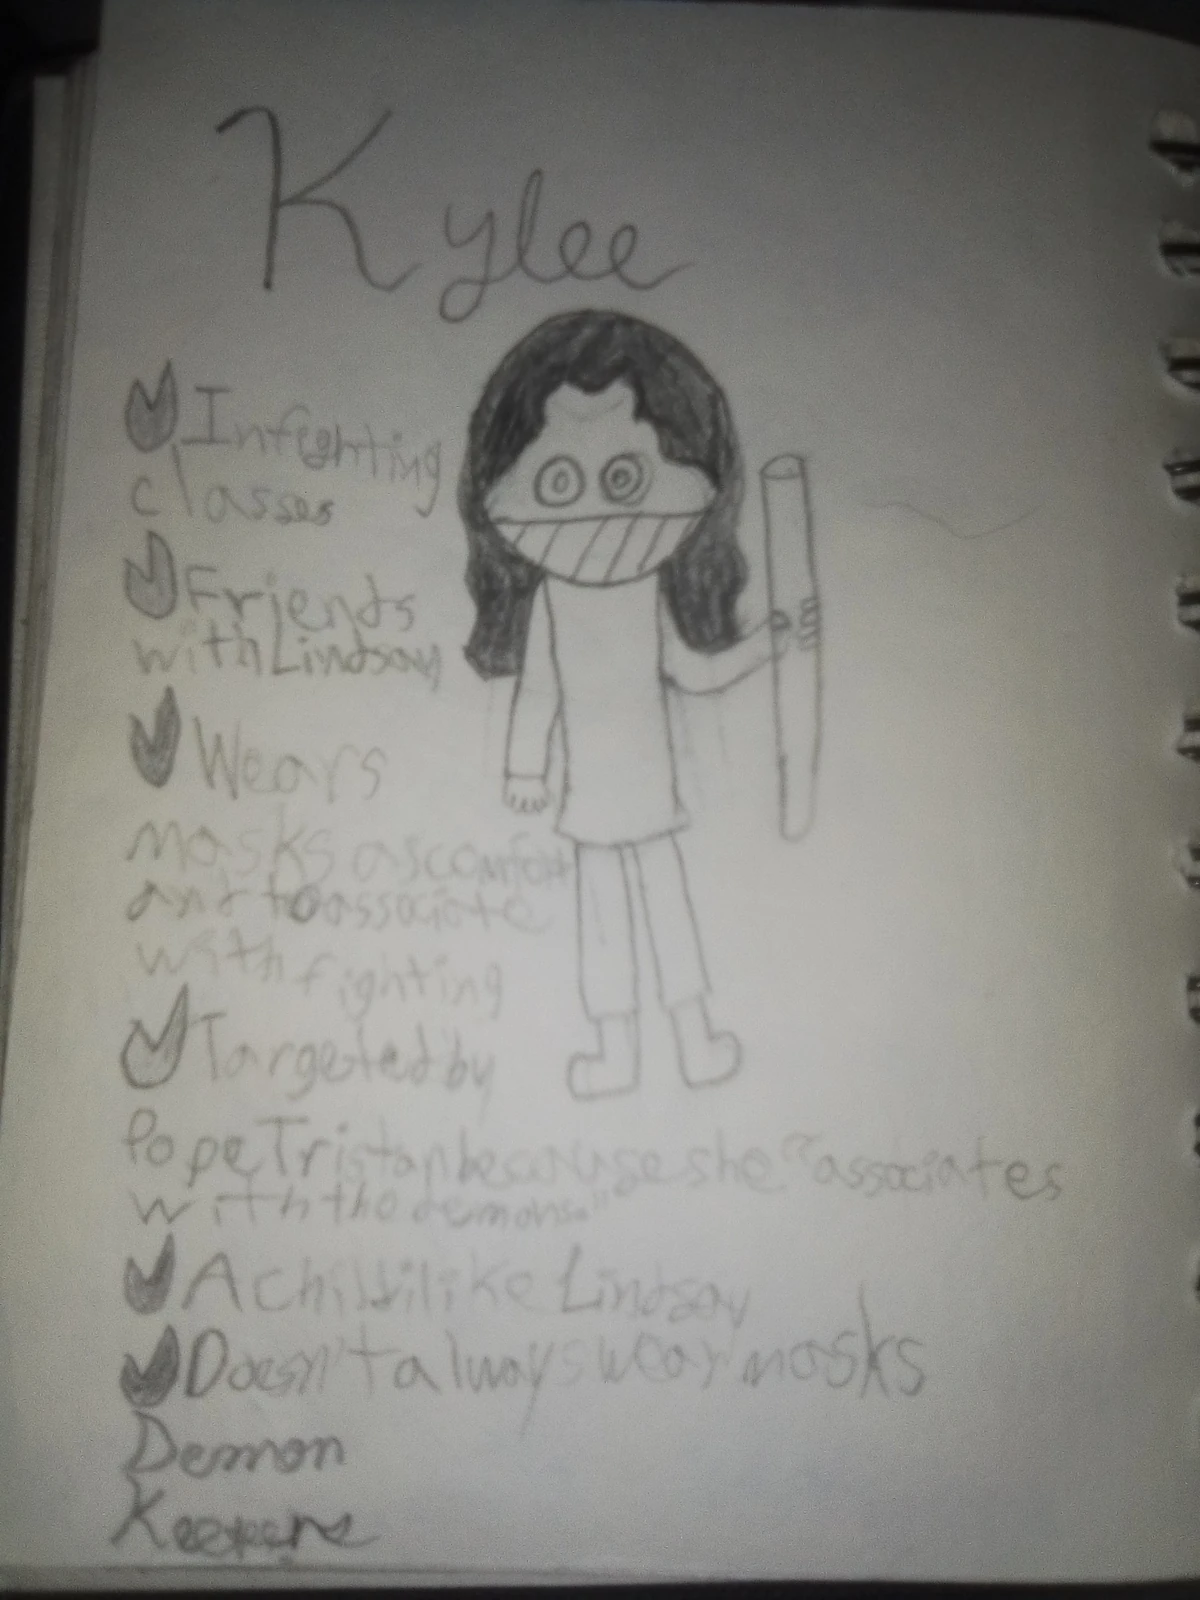 Kylee
In fighting
classes
Friends
with Lindsay
Wears
masks as comfort
and to associate
with fighting
Targeted by
Pope Tristan because she "associates
with the demons."
A child like Lindsay
Doesn't always wear masks
Demon
Keepers